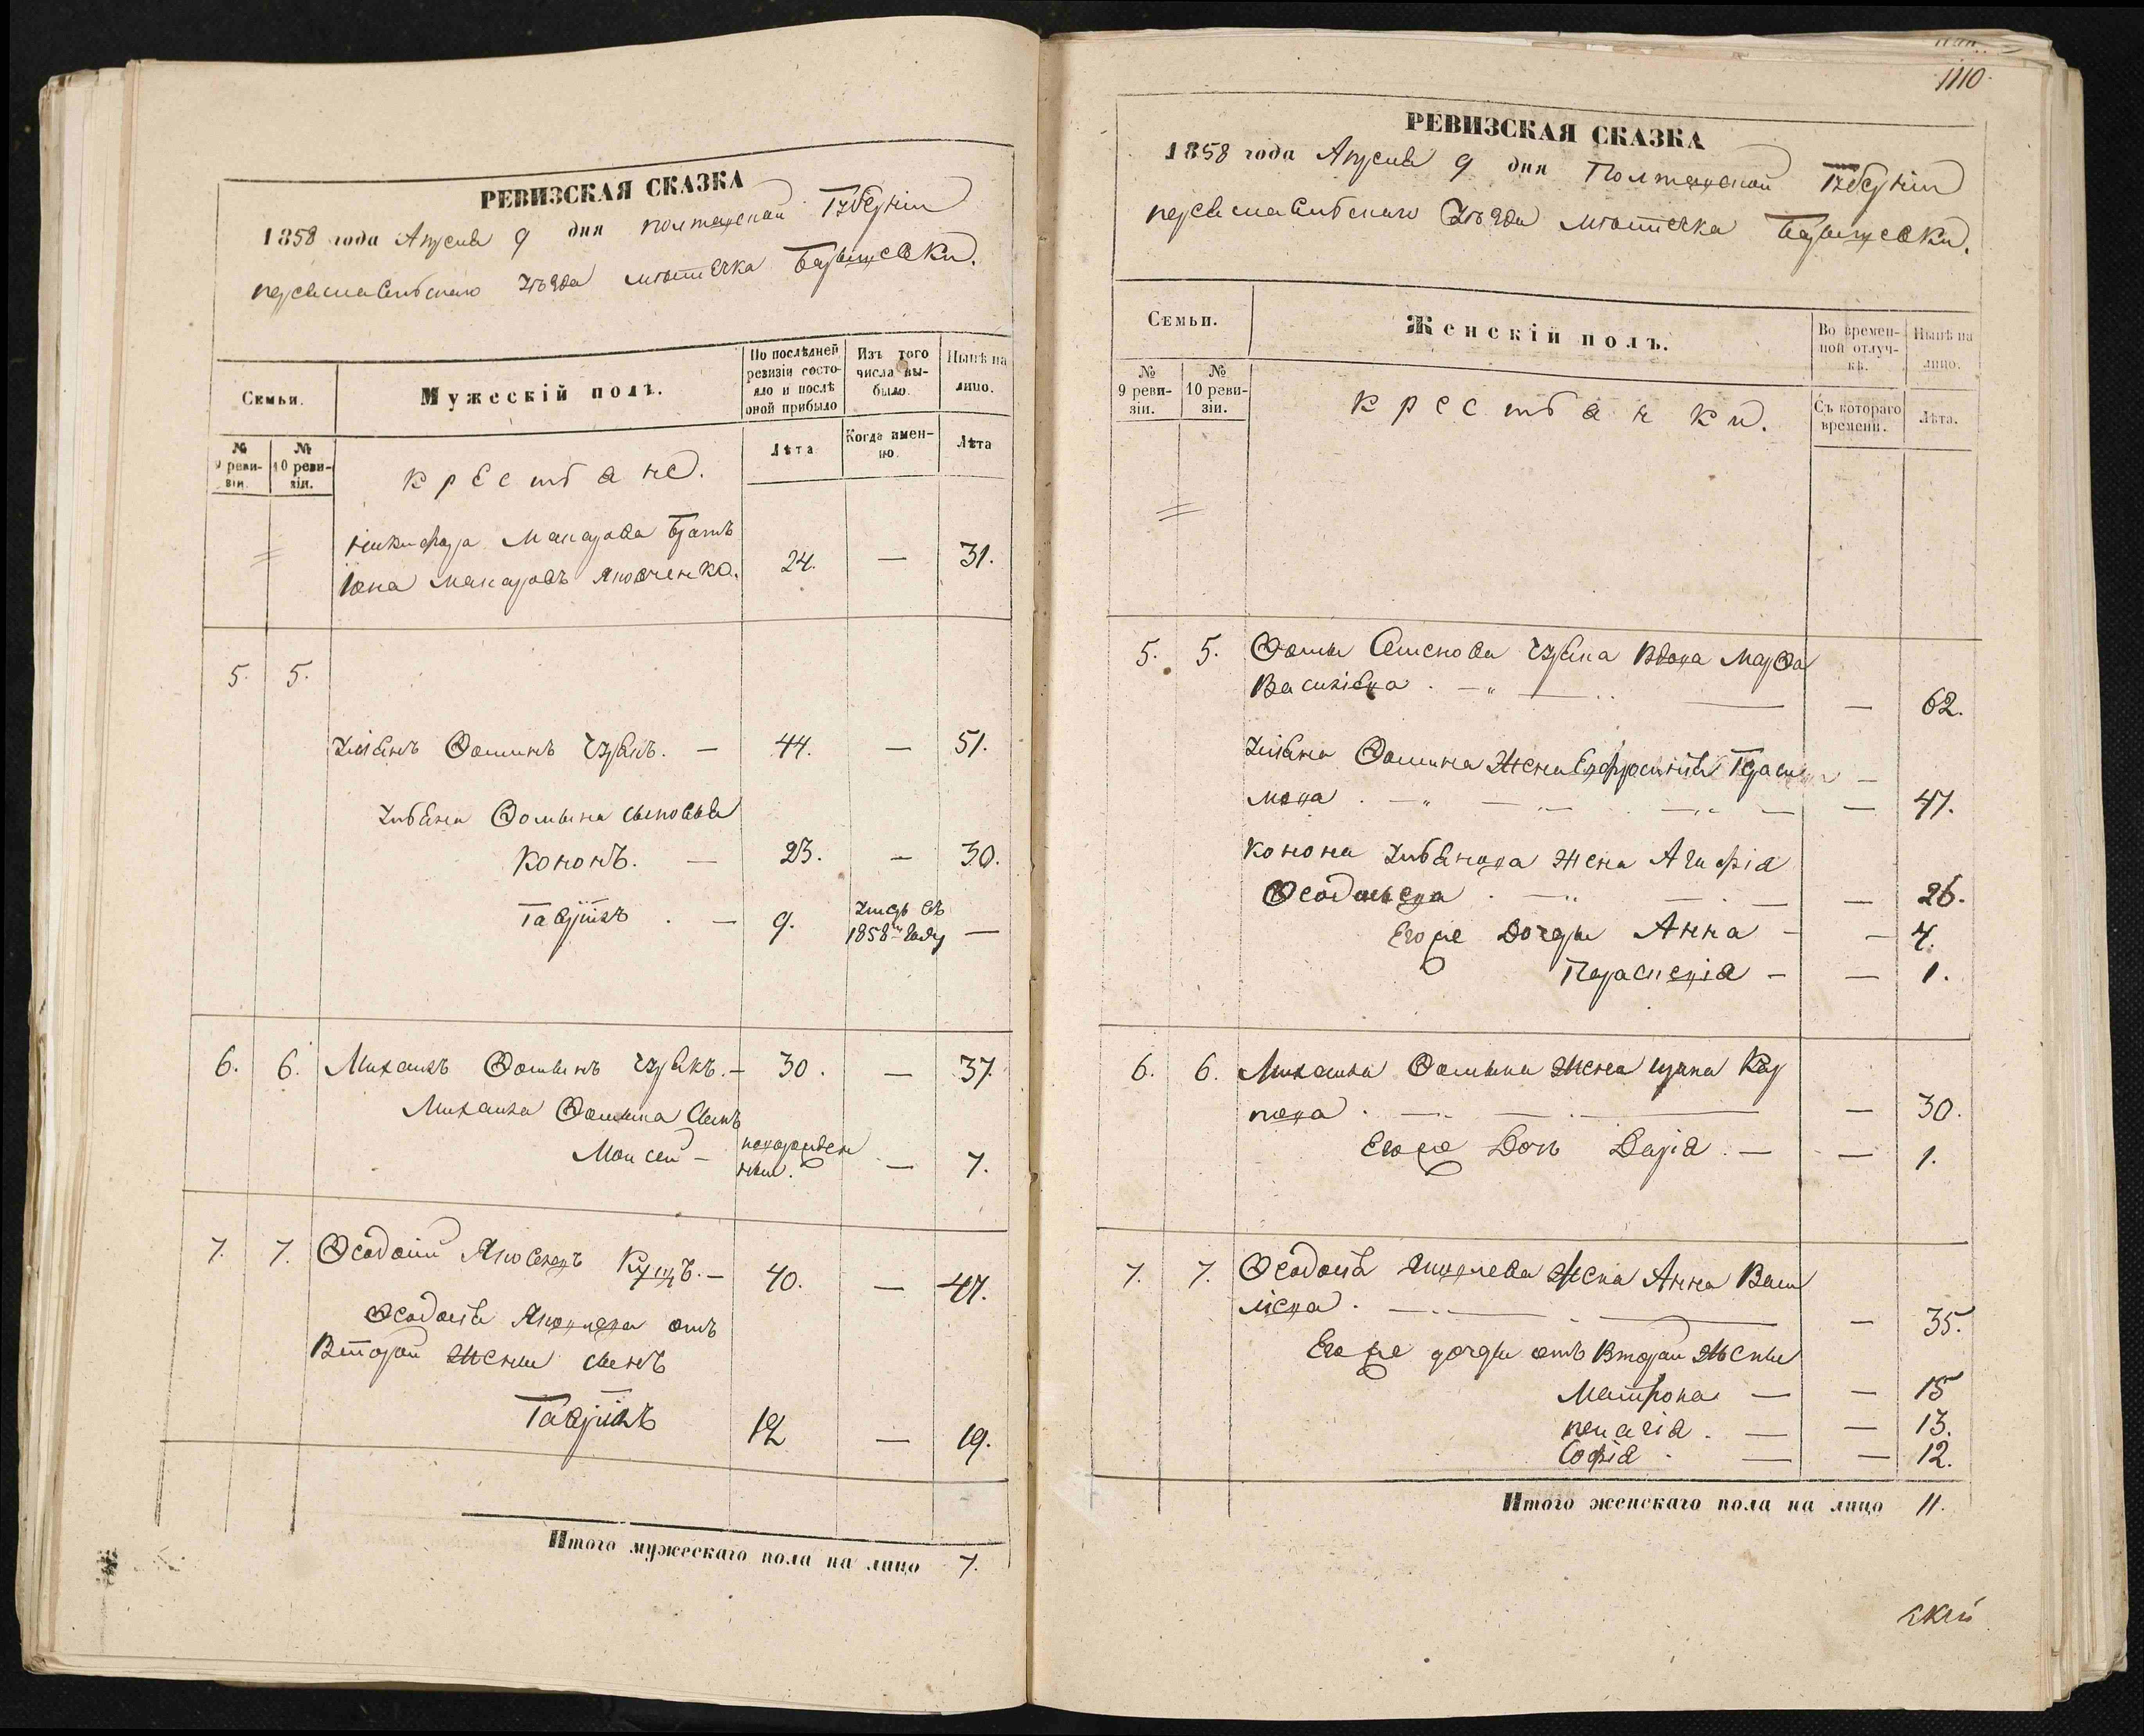 РЕВИЗСКАЯ СКАЗКА
1858 года Апреля 9 дня Полтавской Губерніи
переяславскаго уѣзда мѣстечка Барышевки.
Семьи.
Мужескій полъ.
По послѣдней ревизіи состояло и послѣ оной прибыло
Изъ того числа выбыло.
Нынѣ на лицо.
№ 9 ревизіи.
№ 10 ревизіи.
крестьяне.
Лѣта
Когда именно.
Лѣта
Никифора Макарова братъ
Іона Макаровъ Яковченко. 24. — 31.
5. 5.
Фоминъ 44. — 51.
Фомина сыновья
Кононъ. — 23. — 30.
Гавріилъ . — 9. умеръ въ 1858мъ году —
6. 6. Михаилъ Фоминъ — 30. — 37.
Михаила Фомина сынъ
Моисей — новорожденный. — 7.
7. 7. Феодосій Яковлевъ — 40. — 47.
Феодосія Яковлева отъ
Второй жены сынъ
Гавріилъ 12 — 19.
Итого мужескаго пола на лицо 7.
1110.
РЕВИЗСКАЯ СКАЗКА
1858 года Апреля 9 дня Полтавской Губерніи
переяславскаго уѣзда мѣстечка Барышевки.
Семьи.
Женскій полъ.
Во временной отлучкѣ.
Нынѣ на лицо.
№ 9 ревизіи.
№ 10 ревизіи.
крестьянки.
Съ котораго времени.
Лѣта.
5. 5. Фомы Семенова вдова Марфа
Василіева . — „ — — 62.
Фомина жена Ефросинія Гераси
мова . — „ — — 47.
Конона жена Агафія
Феодосіева . — „ — — 26.
Его же дочери Анна — — 4.
Параскевія — — 1.
6. 6. Михаила Фомина жена Кар
пова . — — 30.
Его же дочь Дарія . — — 1.
7. 7. Феодосія Яковлева жена Анна Васи
ліева . — — 35.
Его же дочери отъ Второй жены
Матрона — — 15
пелагія . — — 13.
Софія . — — 12.
Итого женскаго пола на лицо 11.